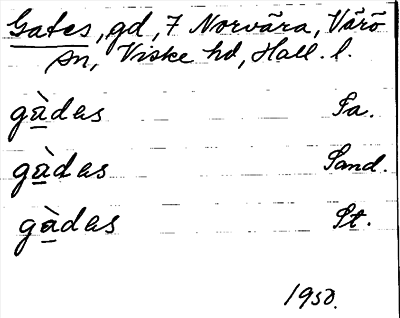 Gates, gd, 7 Norvära, Värö
sn, Viske hd, Hall. l.
gà̱das Sa.
gà̱das Sand.
gà̱das St.
1950.